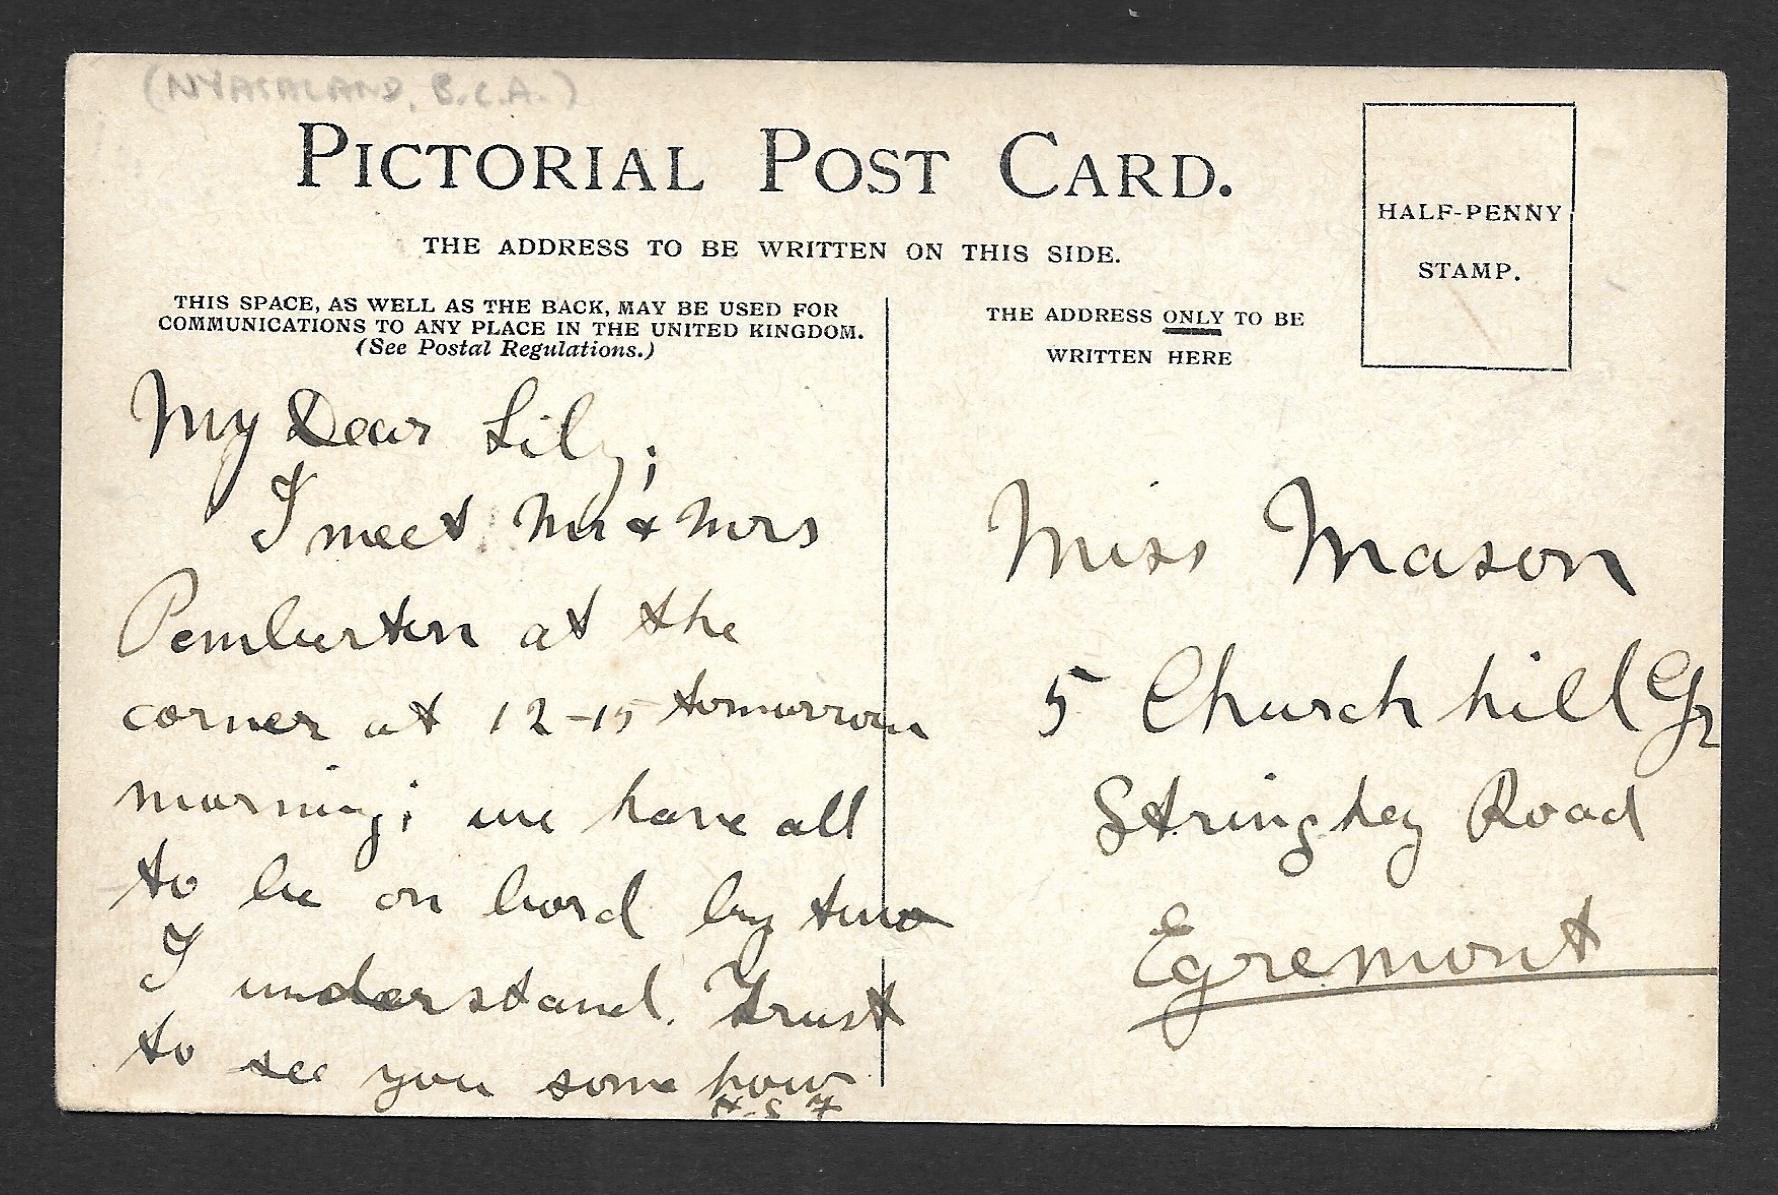 (NYASALAND, B.C.A.)
PICTORIAL POST CARD.
THE ADDRESS TO BE WRITTEN ON THIS SIDE.
HALF-PENNY
STAMP.
THIS SPACE, AS WELL AS THE BACK, MAY BE USED FOR
COMMUNICATIONS TO ANY PLACE IN THE UNITED KINGDOM.
(See Postal Regulations.)
My Dear Lily;
I meet Mr & Mrs
Pemberton at the
corner at 12-15 tomorrow
morning; we have all
to be on bord by two
I understand. Trust
to see you some how
H S F
THE ADDRESS ONLY TO BE
WRITTEN HERE
Miss Mason
5 Churchhill Gr
Stringhey Road
Egremont